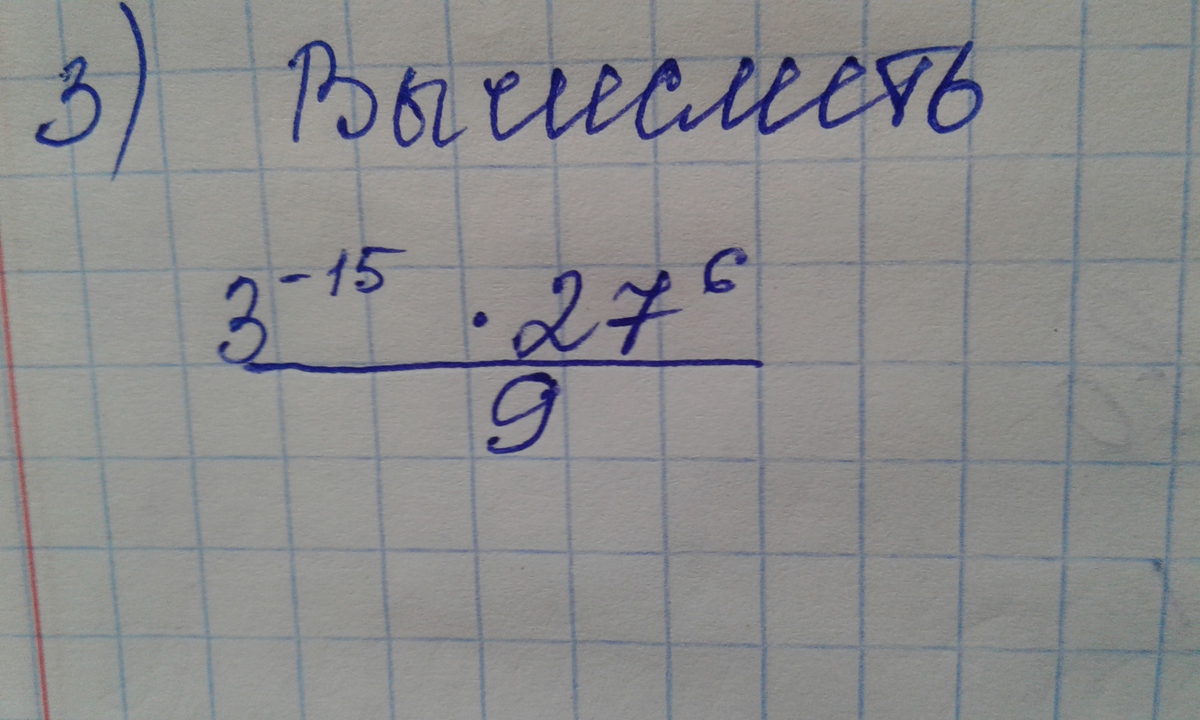 3) Вычислить
3⁻¹⁵ · 27⁶
9